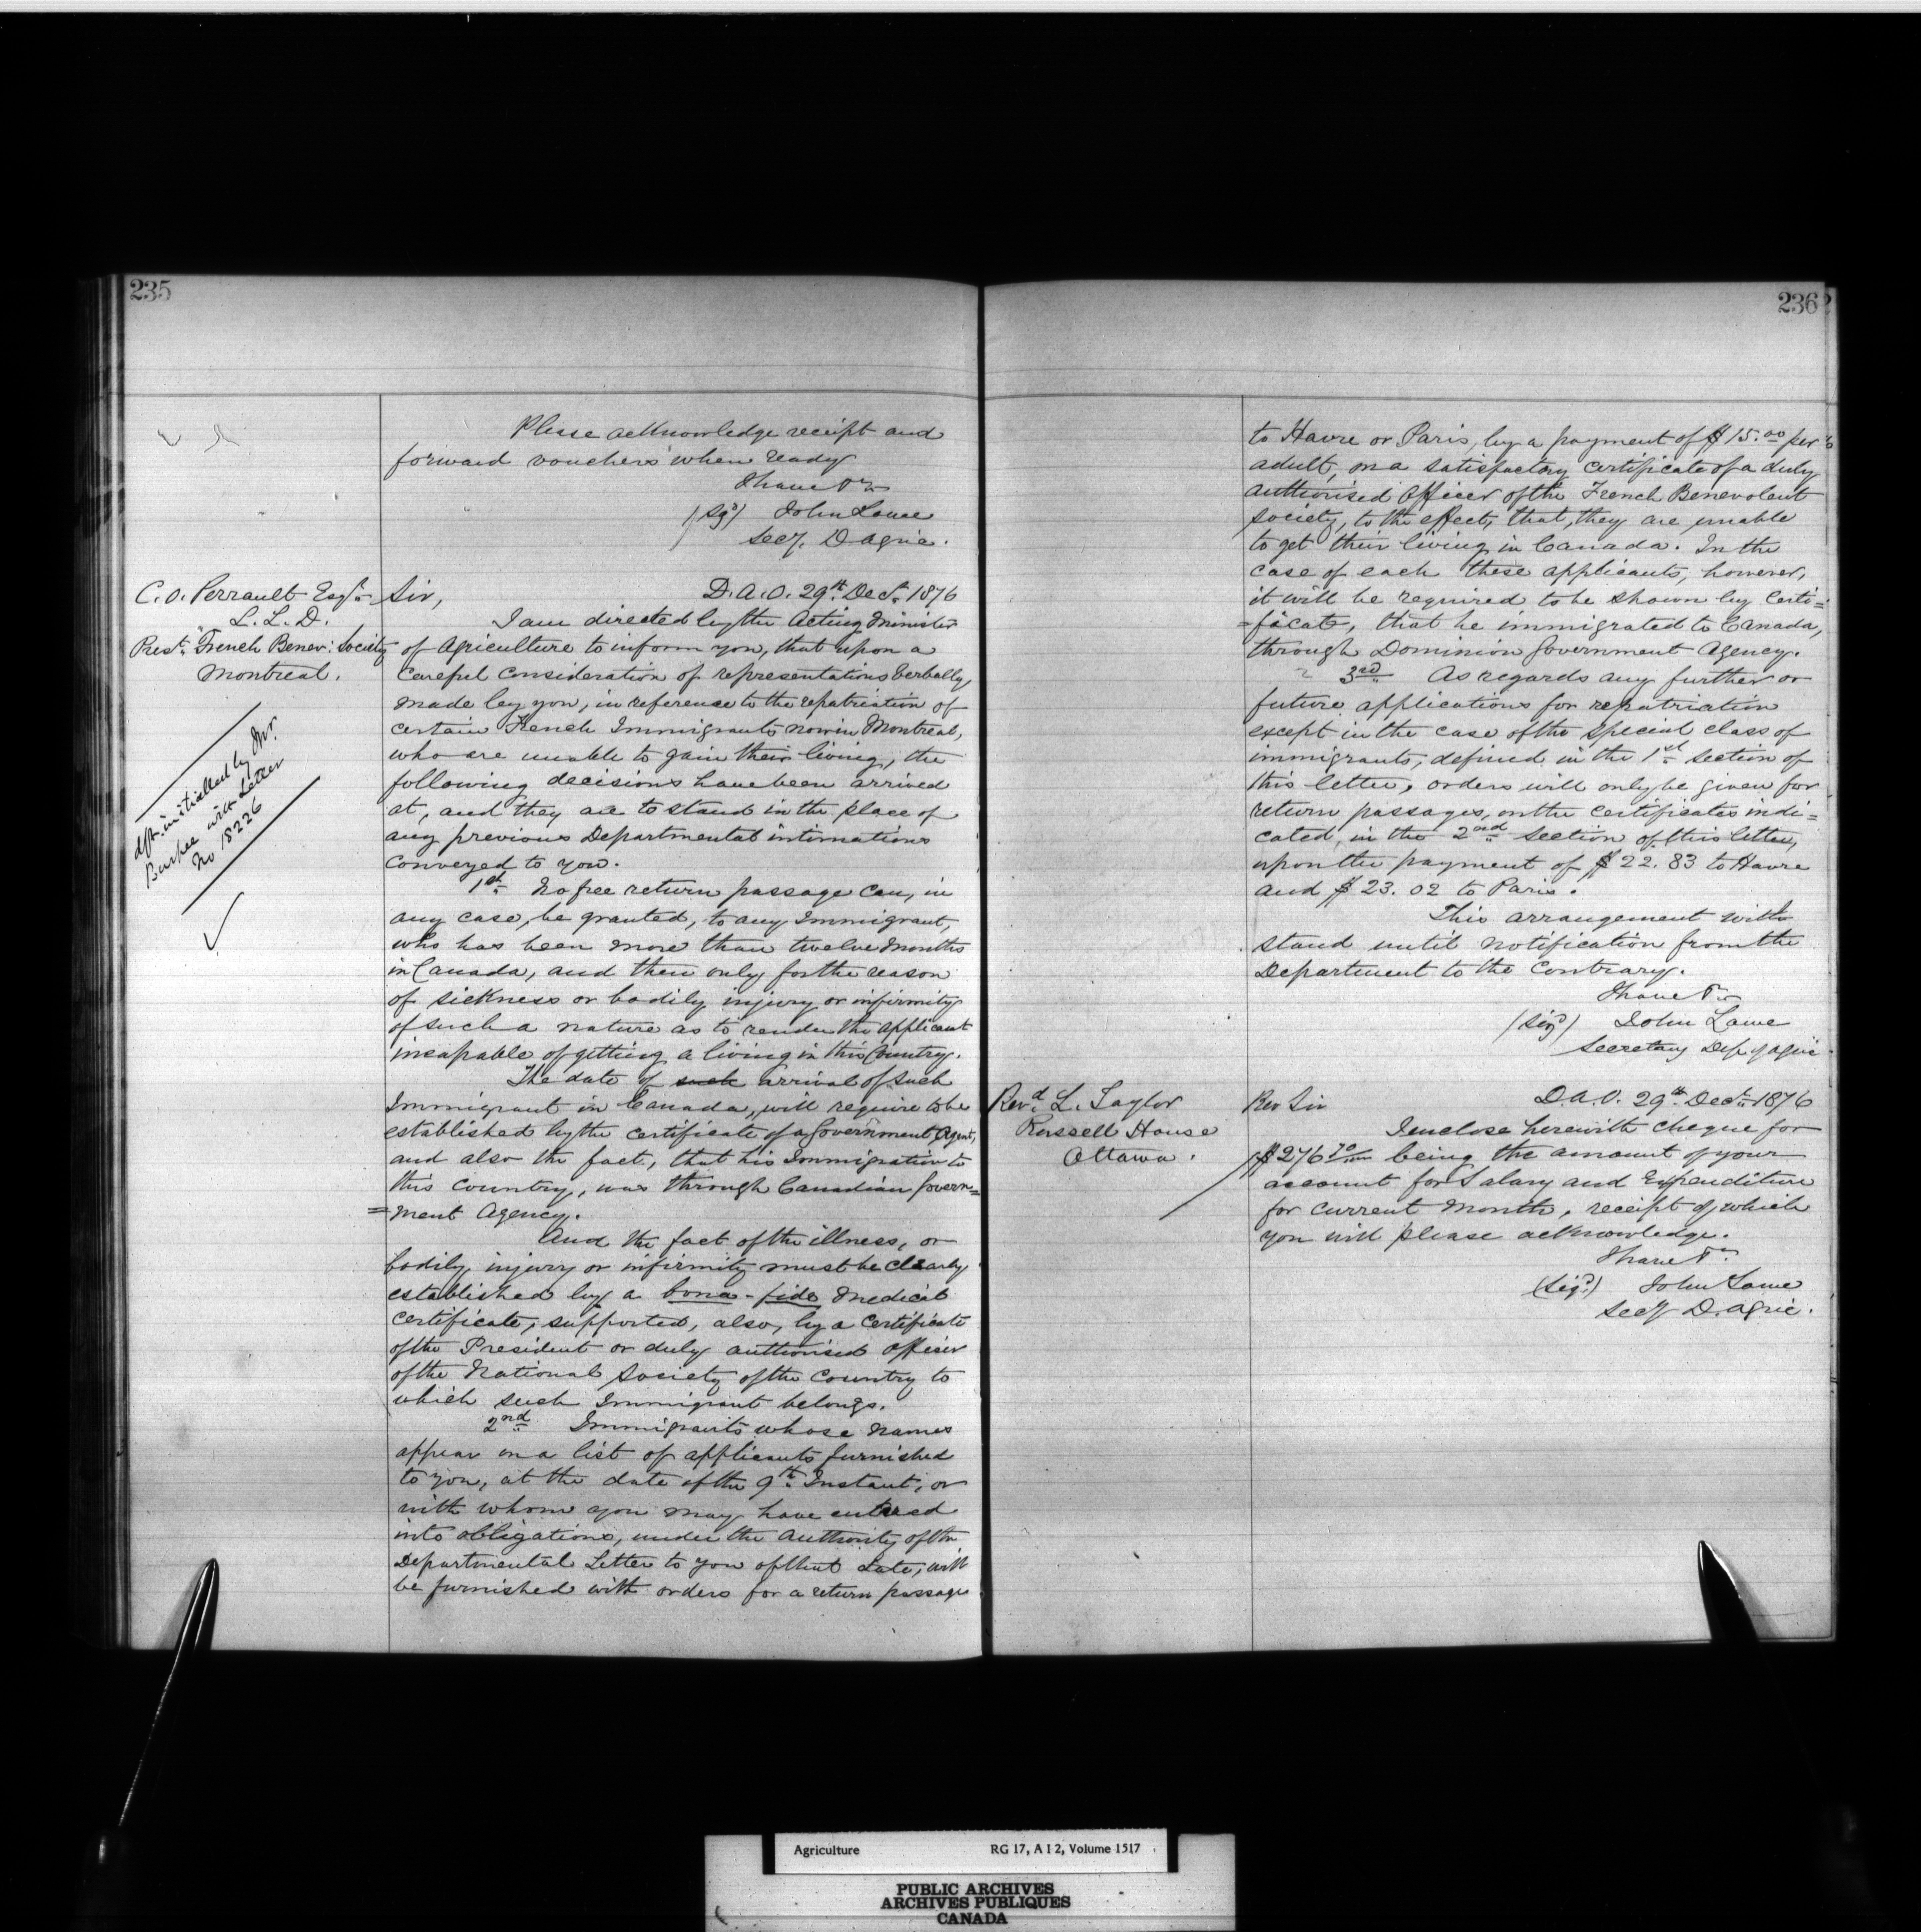 235
Please acknowledge receipt and
forward vouchers when ready
I have &c
(Sgd) John Lowe
Secy. D Agric.
C. O. Perrault Esqr.
L. L. D.
Prest. French Benev: Society
Montreal.
dft. initialled by Mr.
Burpee with Letter
No 18226
Sir, D. A. O. 29th Dec. 1876
I am directed by the Acting Minister
of Agriculture to inform you, that upon a
careful consideration of representations verbally
made by you, in reference to the repatriation of
certain French Immigrants now in Montreal,
who are unable to gain their living, the
following decisions have been arrived
at, and they are to stand in the place of
any previous Departmental intimations
conveyed to you.
1st. No free return passage can, in
any case, be granted, to any Immigrant,
who has been more than twelve months
in Canada, and then only for the reason
of sickness or bodily injury or infirmity
of such a nature as to render the applicant
incapable of getting a living in this Country.
The date of such arrival of such
Immigrant in Canada, will require to be
established by the certificate of a Government Agent,
and also the fact, that his Immigration to
this Country, was through Canadian Govern=
=ment Agency.
And the fact of the illness, or
bodily injury or infirmity must be clearly
established by a bona-fide Medical
certificate, supported, also, by a certificate
of the President or duly authorised officer
of the National Society of the Country to
which such Immigrant belongs.
2nd Immigrants whose names
appear on a list of applicants furnished
to you, at the date of the 9th Instant, or
with whom you may have entered
into obligations, under the authority of the
Departmental Letter to you of that date, will
be furnished with orders for a return passage
236
to Havre or Paris, by a payment of $15.00 per
adult, on a satisfactory certificate of a duly
authorised Officer of the French Benevolent
Society, to the effect, that, they are unable
to get their living in Canada. In the
case of each these applicants, however,
it will be required to be shown by certi=
=ficate, that he immigrated to Canada,
through Dominion Government Agency.
3rd As regards any further or
future applications for repatriation
except in the case of the special class of
immigrants, defined in the 1st section of
this letter, orders will only be given for
return passages, on the certificates indi=
cated, in the 2nd section of this letter,
upon the payment of $22.83 to Havre
and $23.02 to Paris.
This arrangement will
stand until notification from the
Department to the Contrary.
I have &c
(Sigd) John Lowe
Secretary Dep of Agric
Revd. L. Taylor
Russell House
Ottawa.
Rev Sir D.A.O. 29th Dec. 1876
I enclose herewith cheque for
$276 70/100 being the amount of your
account for Salary and Expenditure
for current month, receipt of which
you will please acknowledge.
I have &c
(Sigd) John Lowe
Secy D. Agric.
Agriculture RG 17, A I 2, Volume 1517
PUBLIC ARCHIVES
ARCHIVES PUBLIQUES
CANADA